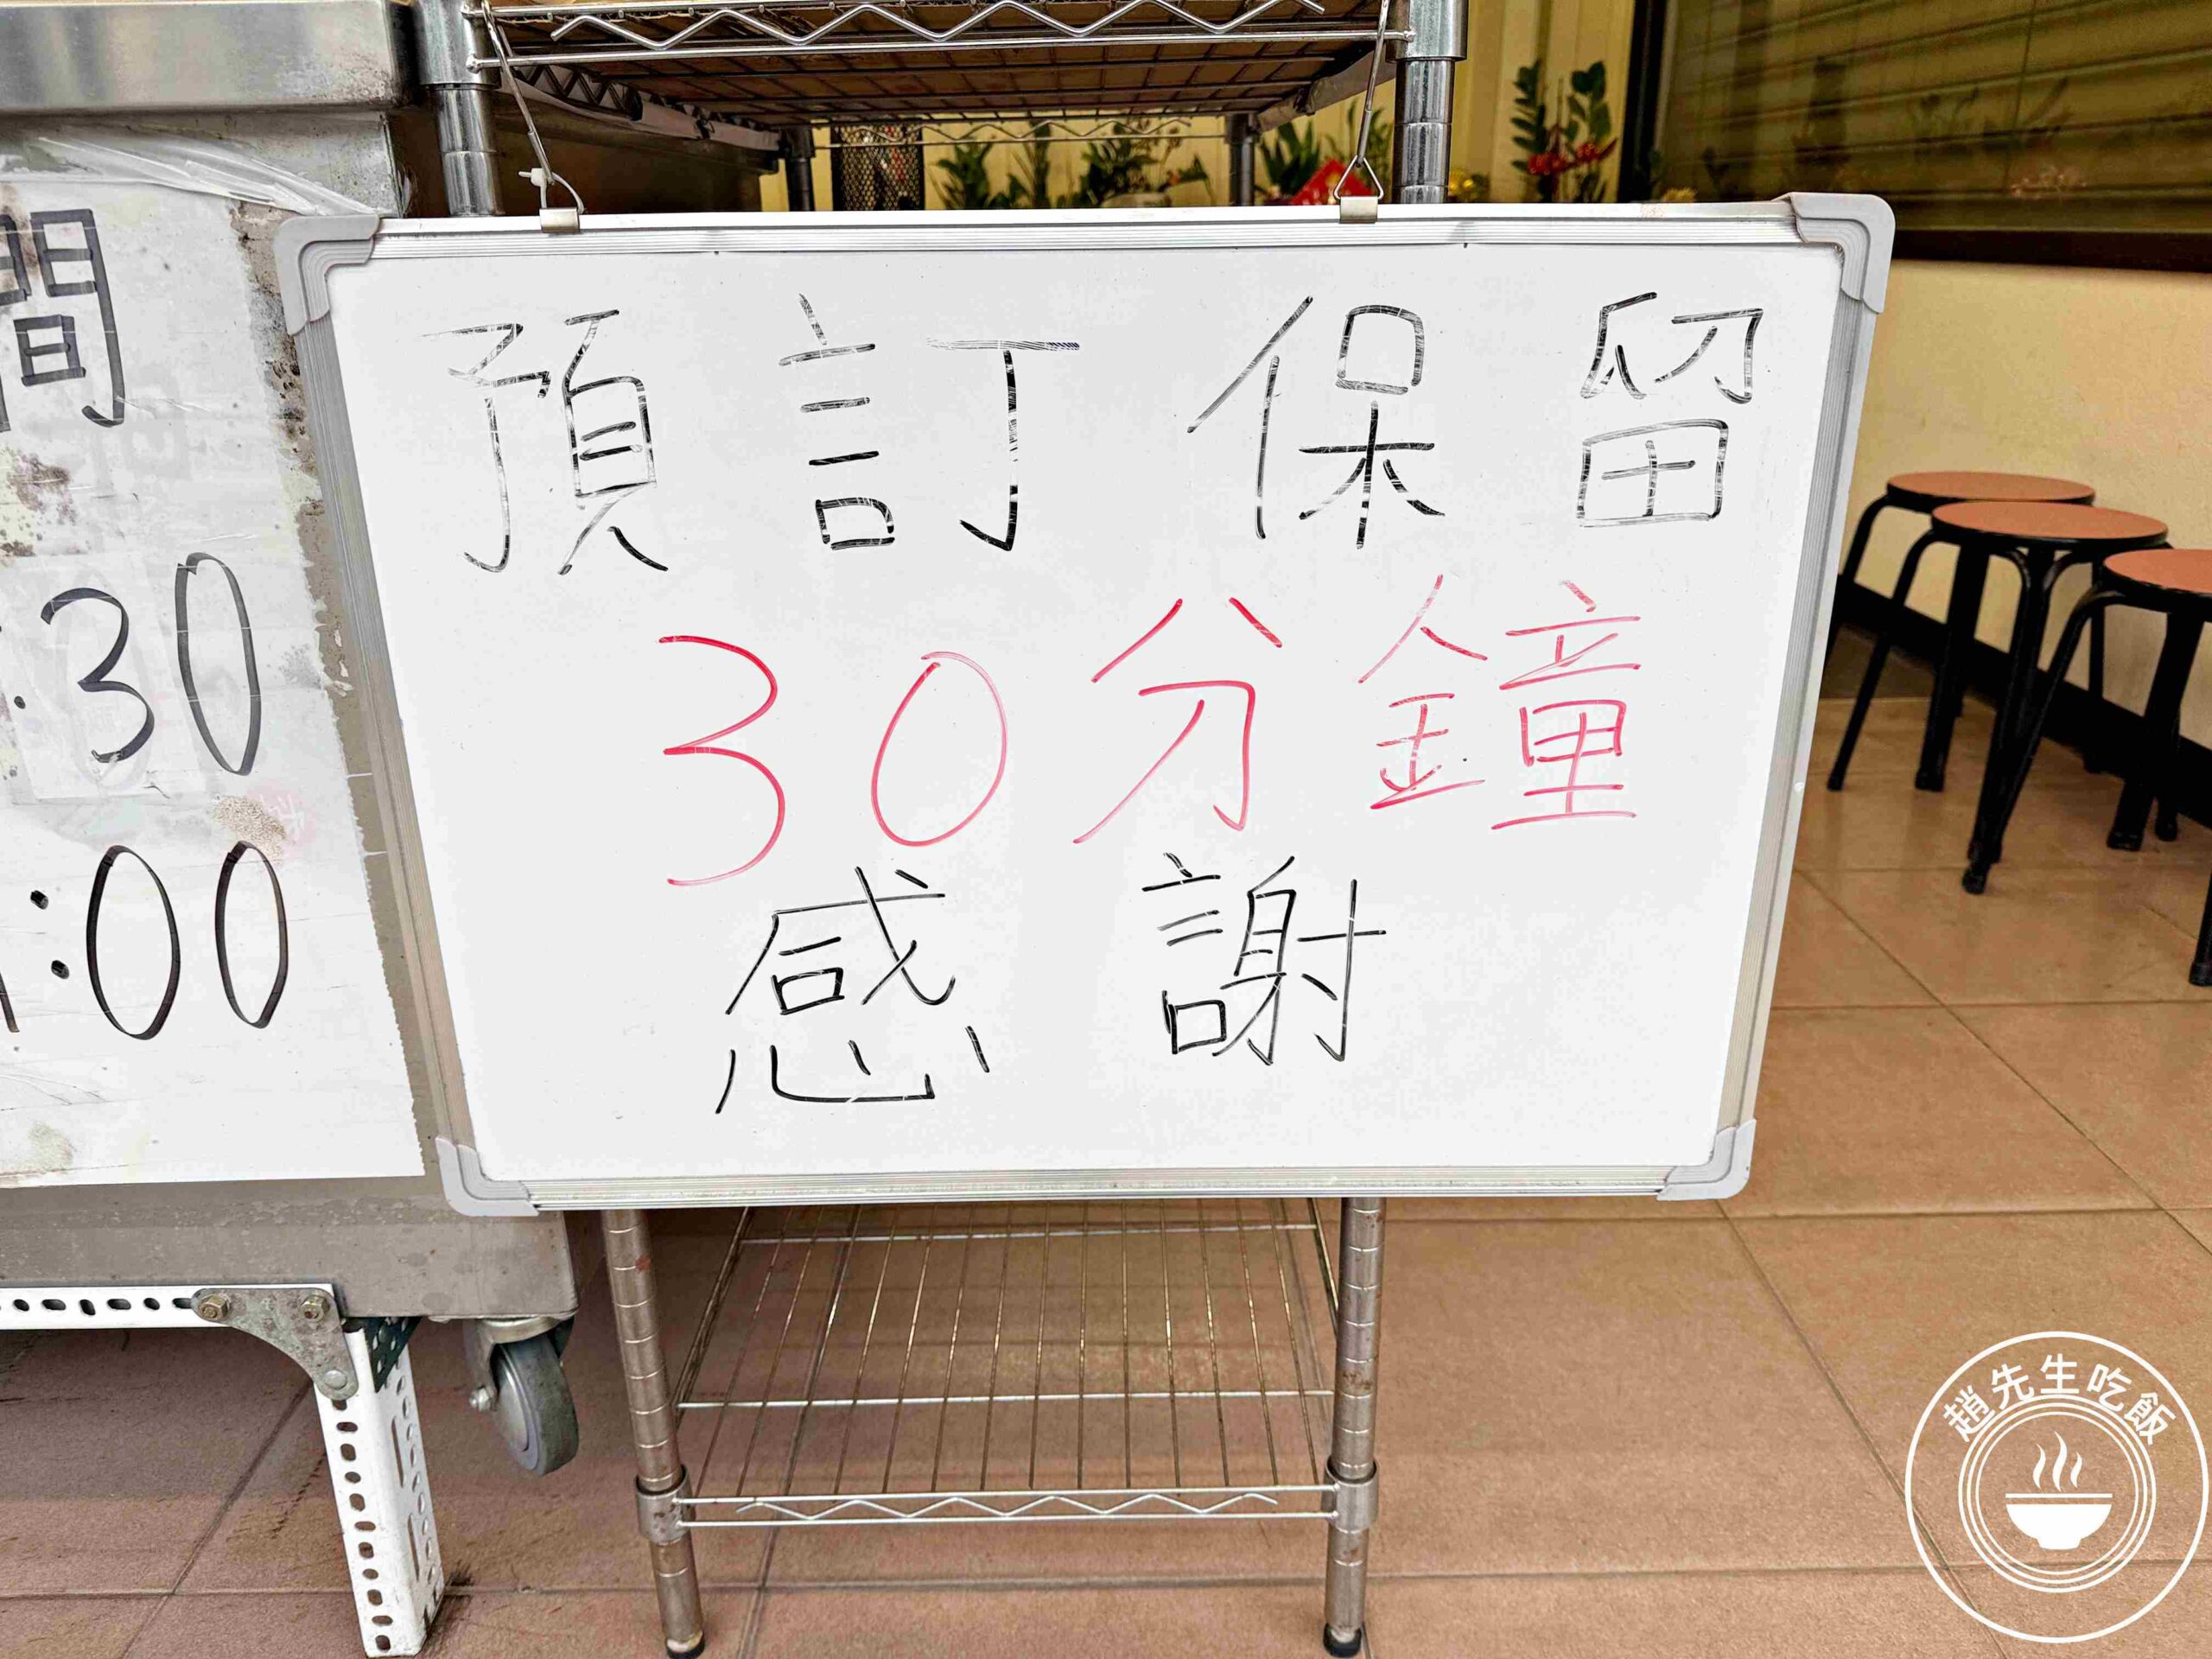 間
:30
:00
預訂保留
30分鐘
感謝
趙先生吃飯